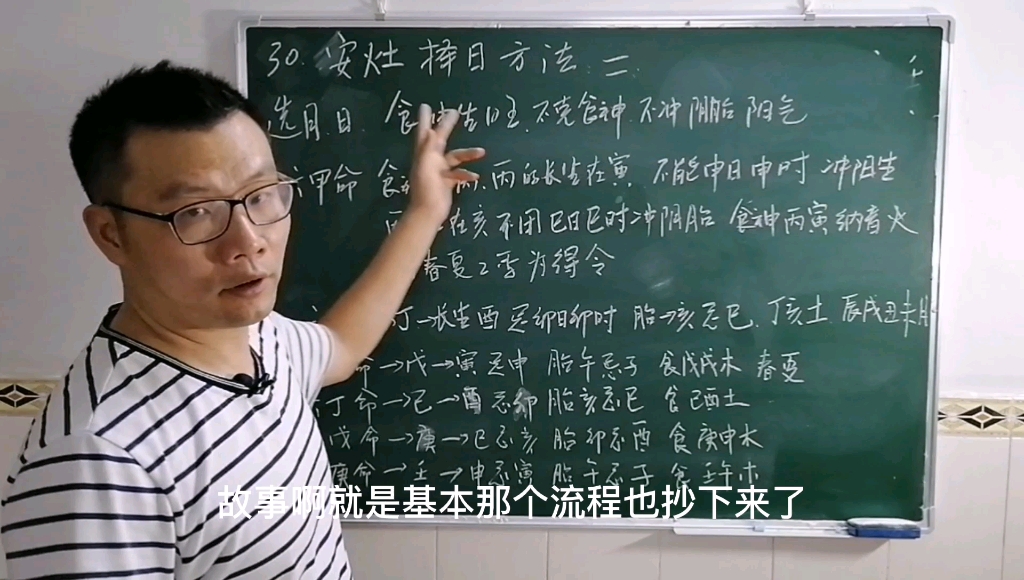 30. 安灶 择日方法 二.
选月.日. 食神生旺. 不克食神 不冲阴胎 阳气
甲命 食 丙的长生在寅 不能申日申时 冲阳生
在亥不用巳日巳时冲阴胎 食神丙寅纳音火
春夏2季为得令
丁→长生酉 忌卯日卯时 胎→亥忌巳. 丁亥土 辰戌丑未月
命→戊→寅忌申 胎午忌子 食戊戌木 春夏
丁命→己→酉忌卯 胎亥忌巳 食己酉土
戊命→庚→巳忌亥 胎卯忌酉 食庚申木
庚命→壬→申忌寅 胎午忌子 食壬午木
故事啊就是基本那个流程也抄下来了